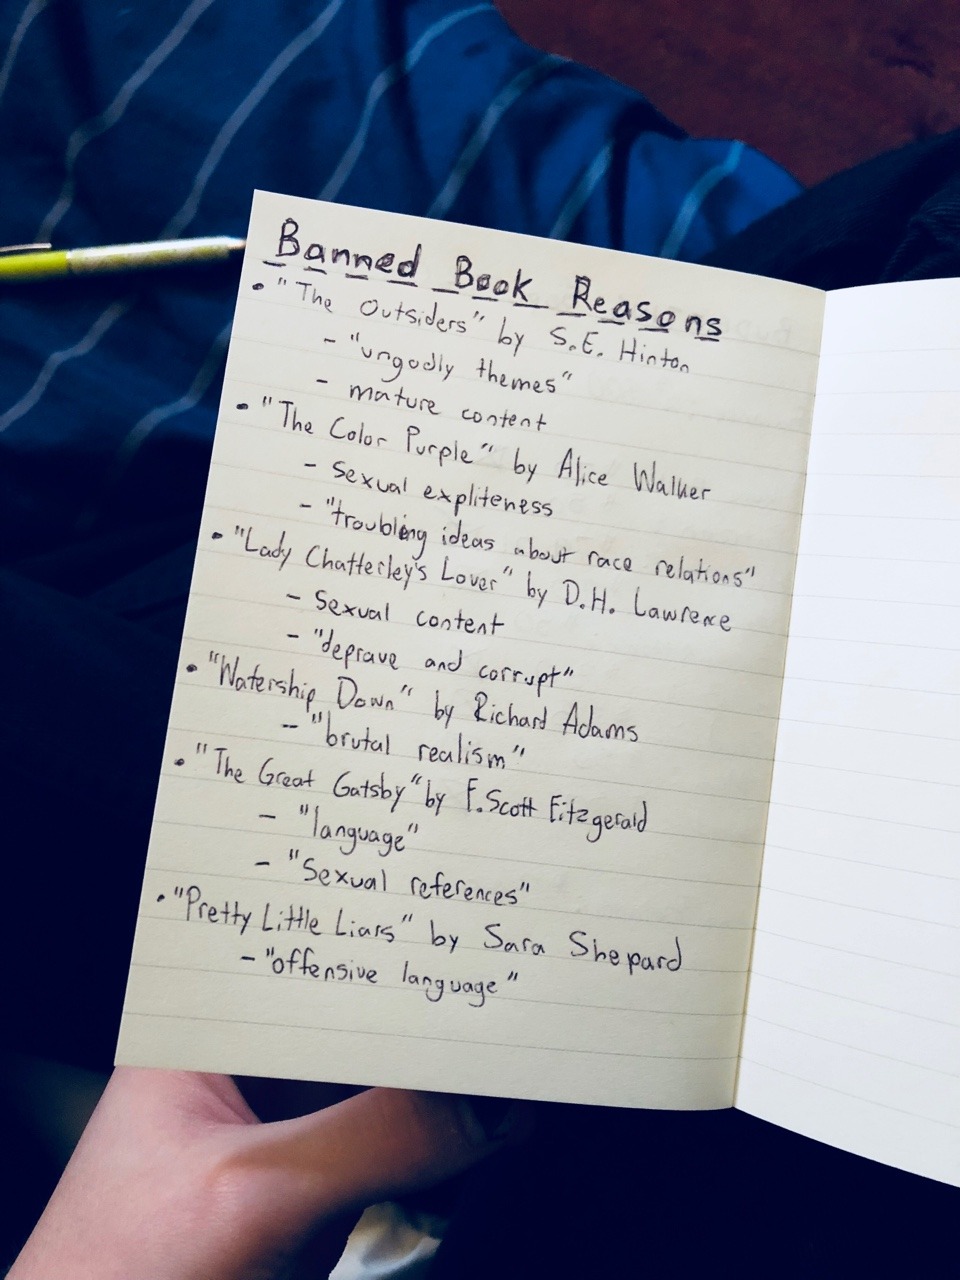 Banned Book Reasons
• "The Outsiders" by S.E. Hinton
- "ungodly themes"
- mature content
• "The Color Purple" by Alice Walker
- sexual expliteness
- "troubling ideas about race relations"
• "Lady Chatterley's Lover" by D.H. Lawrence
- sexual content
- "deprave and corrupt"
• "Watership Down" by Richard Adams
- "brutal realism"
• "The Great Gatsby" by F. Scott Fitzgerald
- "language"
- "Sexual references"
• "Pretty Little Liars" by Sara Shepard
- "offensive language"